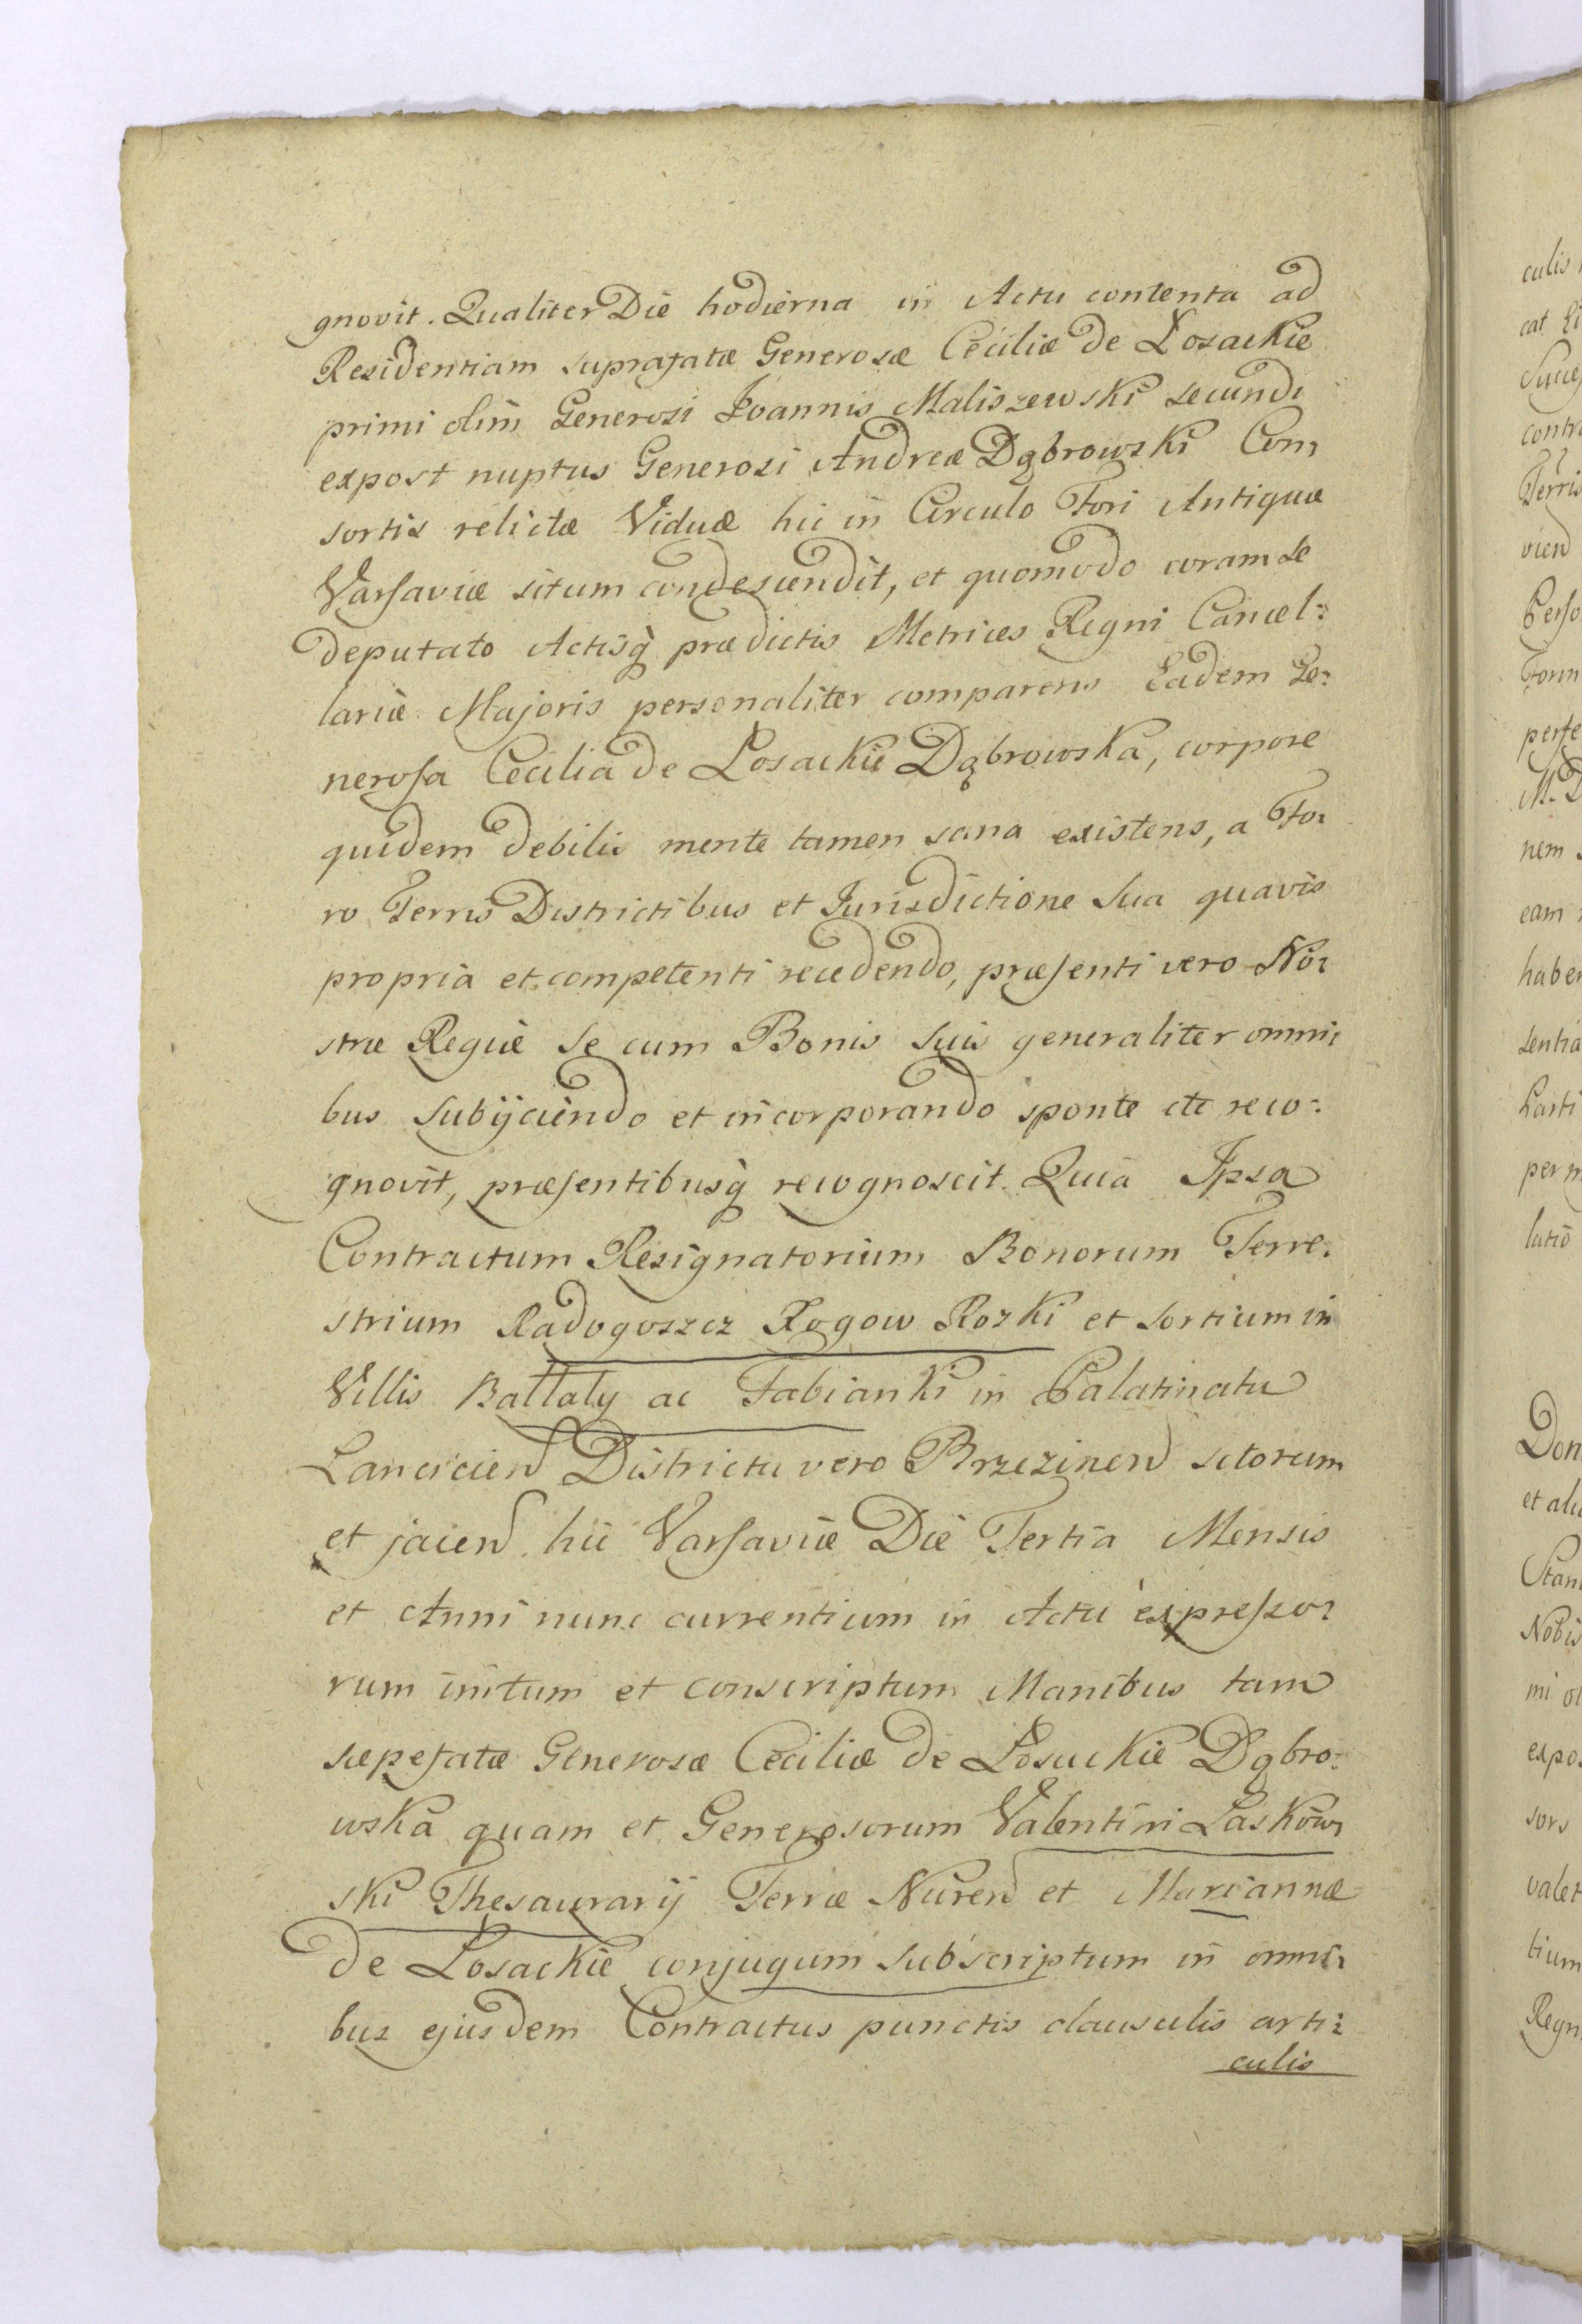 gnovit. Qualiter Die hodierna in Actu contenta ad
Residentiam suprafatæ Generosæ Ceciliæ de Łosackie
primi olim Generosi Joannis Maliszewski secundi
expost nuptus Generosi Andreæ Dąbrowski Con,
sortis relictæ Viduæ hic in Circulo Fori Antiquæ
Varsaviæ situm condescendit, et quomodo coram Se
deputato Actisq̀ prædictis Metrices Regni Cancel:
lariæ Majoris personaliter comparens Eadem Ge:
nerosa Cecilia de Łosackie Dąbrowska, corpore
quidem debilis mente tamen sana existens, a Fo:
ro Terris Districtibus et Jurisdictione Sua quavis
propria et competenti recedendo, præsenti vero No:
stræ Regiæ se cum Bonis Suis generaliter omni,
bus subijciendo et incorporando sponte etc reco:
gnovit, præsentibusq̀ recognoscit. Quia Ipsa
Contractum Resignatorium Bonorum Terre:
strium Radogoszcz Rogow Rozki et Sortium in
Villis Bałłaty ac Fabianki in Palatinatu
Lancicien Districtu vero Brzezinen sitorum
et jacen hic Varsaviæ Die Tertia Mensis
et Anni nunc currentium in Actu expresso:
rum initum et conscriptum Manibus tam
sæpefatæ Generosæ Ceciliæ de Łosackie Dąbro:
wska quam et Generosorum Valentini Laskow,
ski Thesaurarij Terræ Nuren et Mariannæ
de Łosackie conjugum subscriptum in omni,
bus ejusdem Contractus punctis clausulis arti:
culis
culis
cat
contr
Terris
vien
Perso
Form
perfe
M. D
nem
eam
haben
tentia
parti
per m
latio
Don
et ali
Stan
Nobis
mi ol
expos
sors
valet
tium
Regn